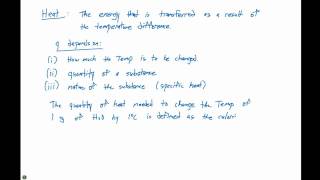 Heat : The energy that is transferred as a result of
the temperature difference.
q depends on:
(i) How much the Temp is to be changed.
(ii) quantity of a substance.
(iii) nature of the substance (specific heat)
The quantity of heat needed to change the Temp of
1 g of H₂O by 1°C is defined as the calorie